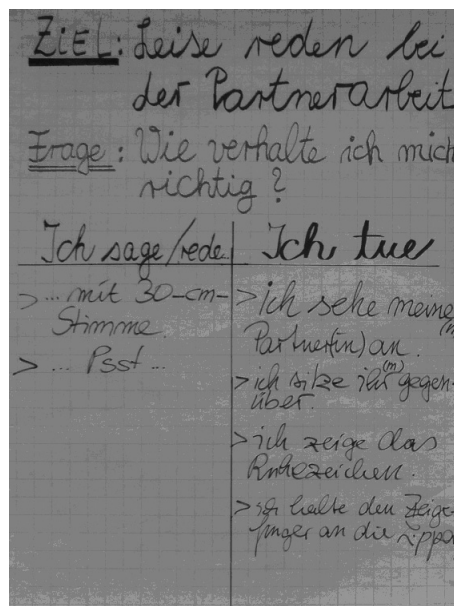 ZIEL: Leise reden bei
der Partnerarbeit
Frage: Wie verhalte ich mich
richtig?
Ich sage/rede
> ... mit 30-cm-
Stimme.
> ... Psst ...
Ich tue
> ich sehe meine
(n)
Partner(in) an.
> ich sitze ihr (m) gegen-
über.
> ich zeige das
Ruhezeichen.
> ich halte den Zeige-
finger an die Lippe